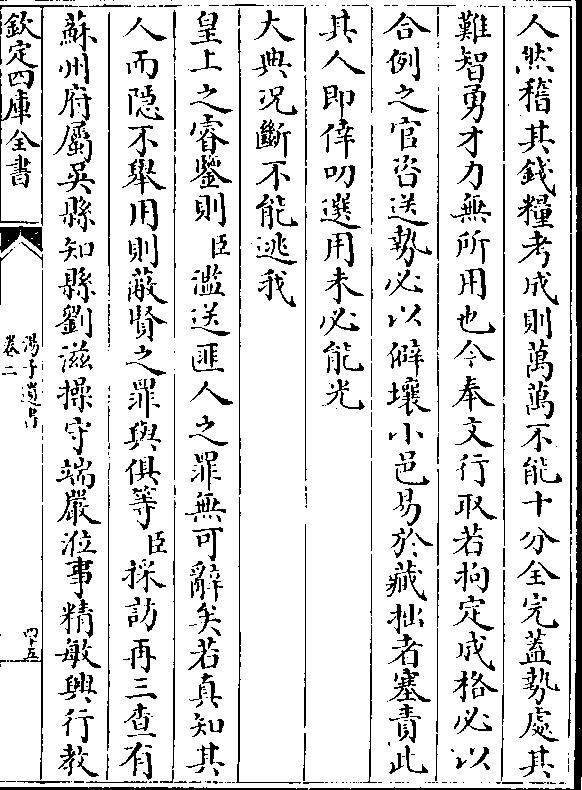 人然稽其錢糧考成則萬萬不能十分全完蓋勢處其
難智勇才力無所用也今奉文行取若拘定成格必以
合例之官咨送勢必以僻壤小邑易於藏拙者塞責此
其人即倖叨選用未必能光
大典況斷不能逃我
皇上之睿鑒則臣濫送匪人之罪無可辭矣若真知其
人而隱不舉用則蔽賢之罪與俱等臣採訪再三查有
蘇州府屬吳縣知縣劉滋操守端嚴涖事精敏興行教
欽定四庫全書
湯子遺書
卷二
四十五